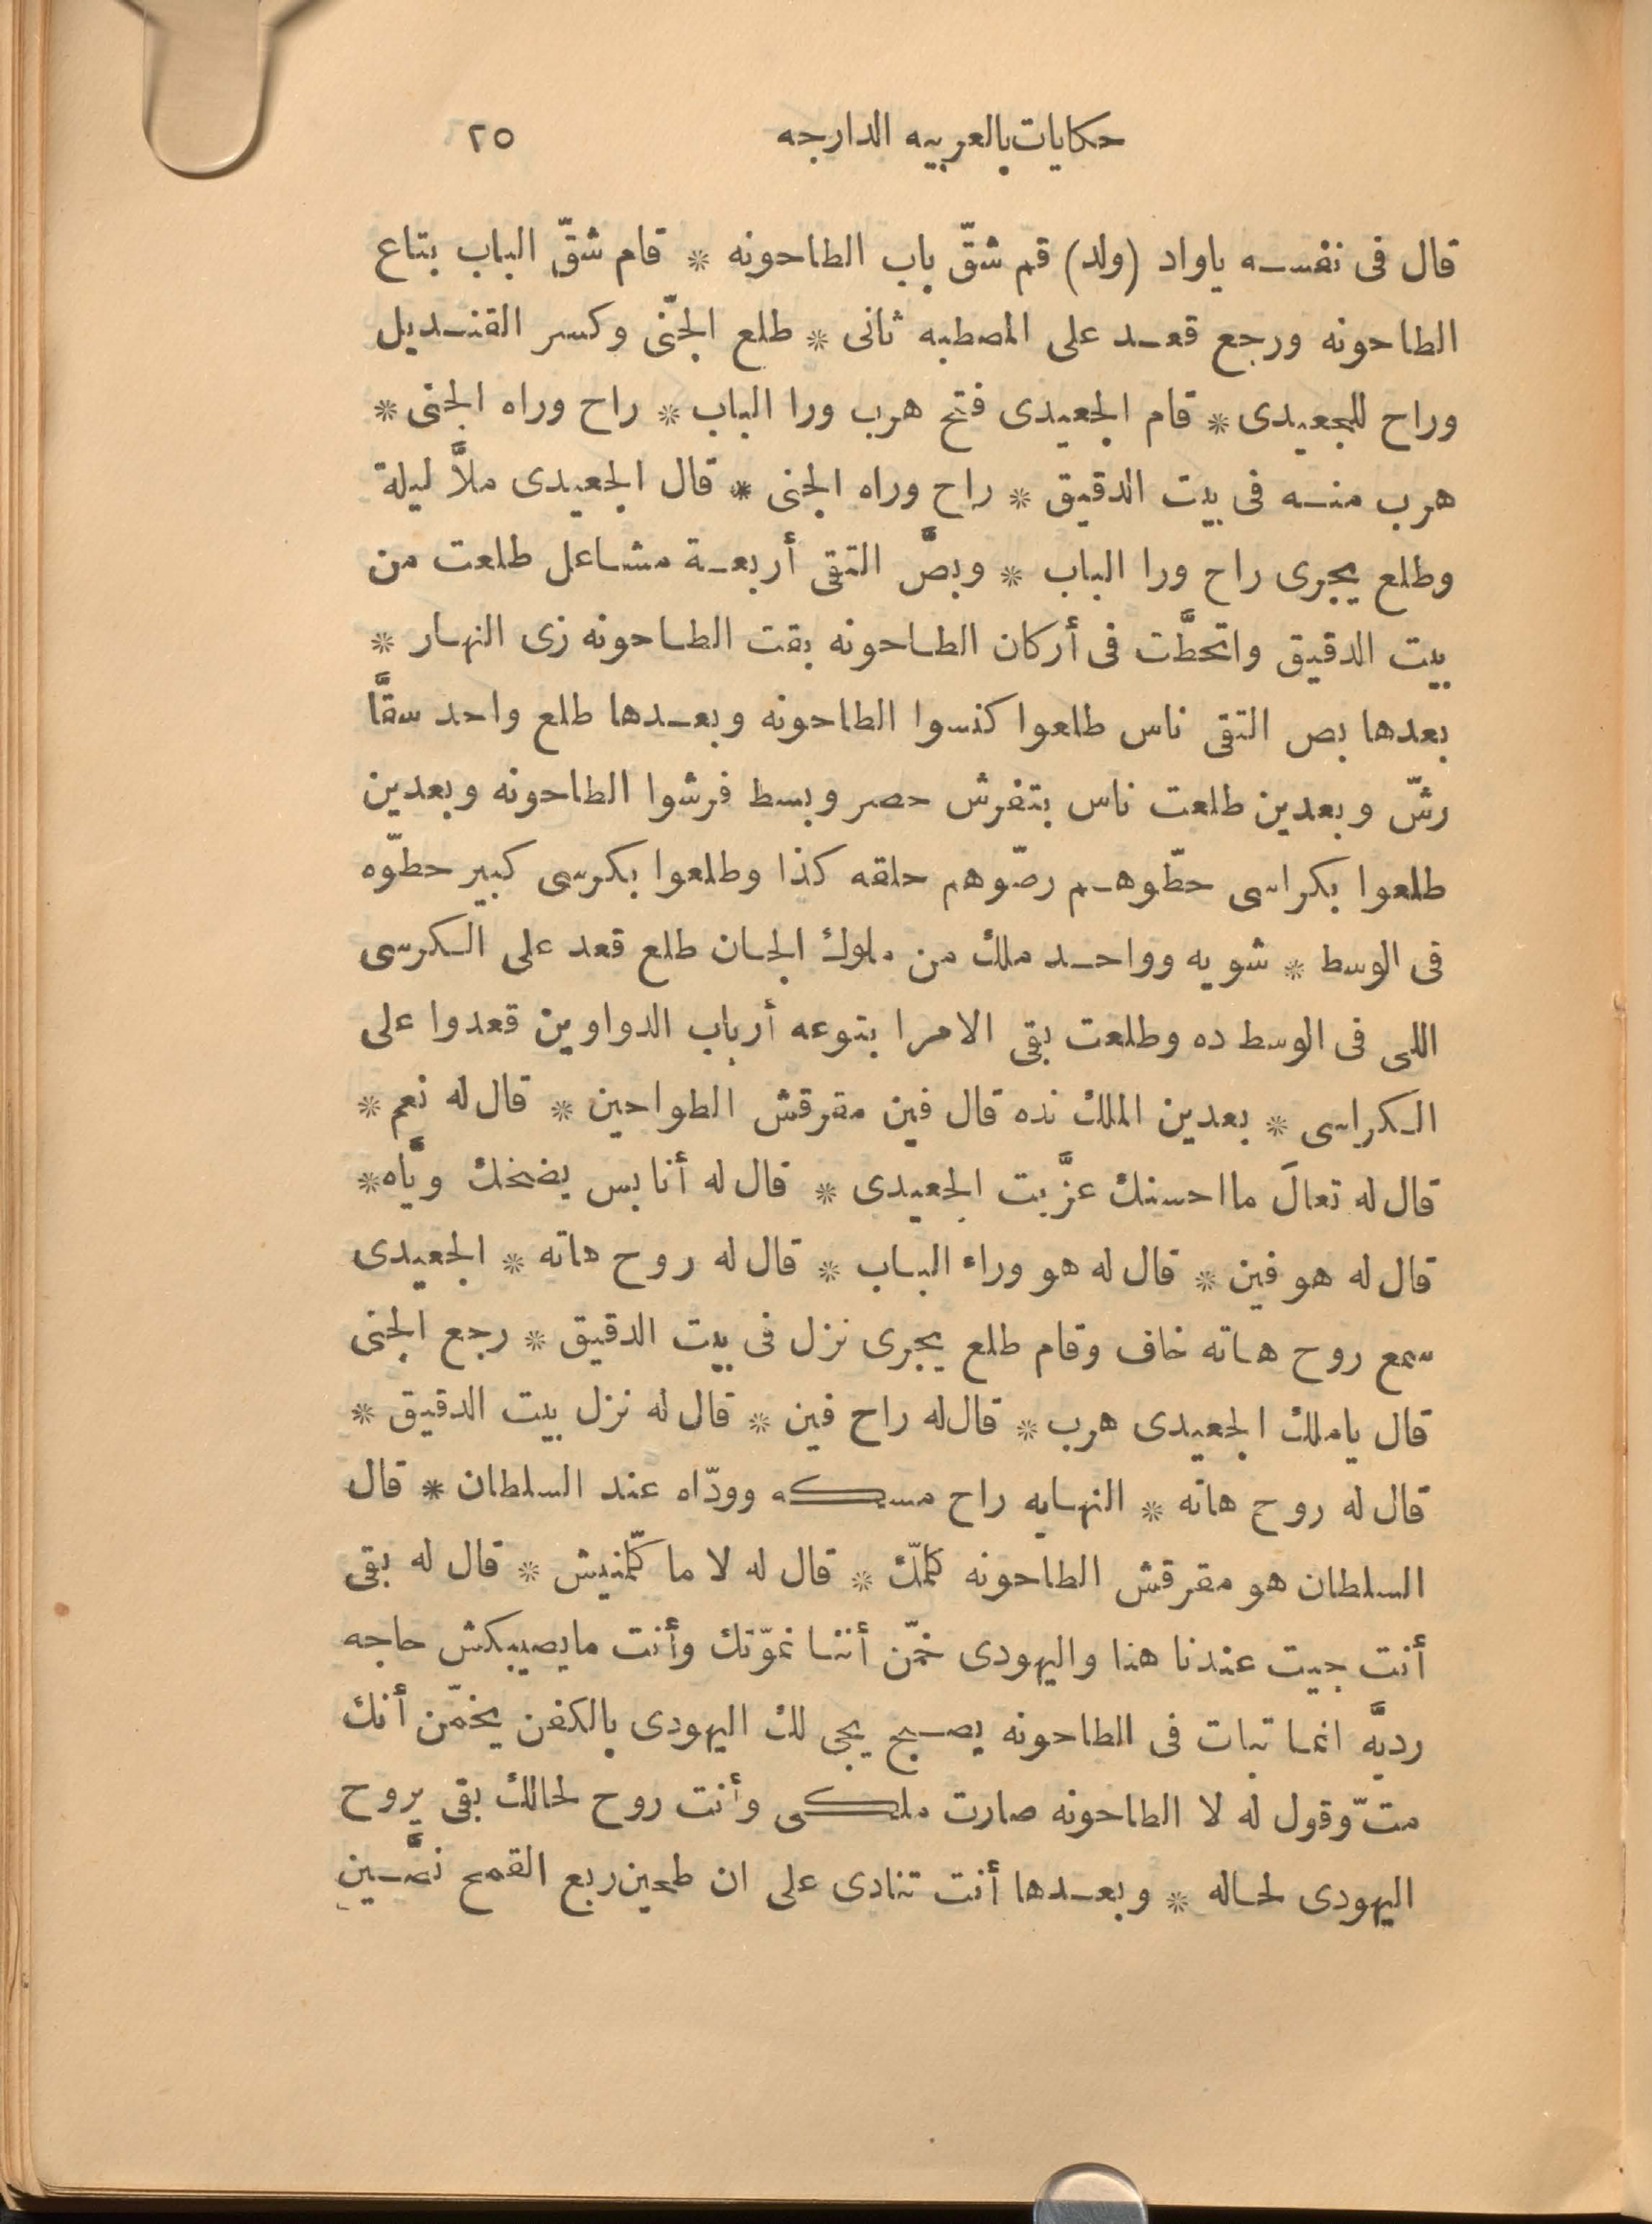 حكايات بالعربيه الدارجه ٢٥
قال فى نفسه ياواد (ولد) قم شقّ باب الطاحونه * قام شقّ الباب بتاع
الطاحونه ورجع قعد على المصطبه ثانى * طلع الجنّى وكسر القنديل
وراح للجعيدى * قام الجعيدى فتح هرب ورا الباب * راح وراه الجنى *
هرب منه فى بيت الدقيق * راح وراه الجنى * قال الجعيدى ملاَّ ليلة
وطلع يجرى راح ورا الباب * وبصَّ التقى أربعة مشاعل طلعت من
بيت الدقيق واتحطَّت فى أركان الطاحونه بقت الطاحونه زى النهار *
بعدها بص التقى ناس طلعوا كنسوا الطاحونه وبعدها طلع واحد سقَّا
رشّ وبعدين طلعت ناس بتفرش حصر وبسط فرشوا الطاحونه وبعدين
طلعوا بكراسى حطّوهم رصّوهم حلقه كذا وطلعوا بكرسى كبير حطّوه
فى الوسط * شويه وواحد ملك من ملوك الجان طلع قعد على الكرسى
اللى فى الوسط ده وطلعت بقى الامرا بتوعه أرباب الدواوين قعدوا على
الكراسى * بعدين الملك نده قال فين مقرقش الطواحين * قال له نعم *
قال له تعالَ مااحسنك عزَّبت الجعيدى * قال له أنا بس يضحك ويَّاه *
قال له هو فين * قال له هو وراء الباب * قال له روح هاته * الجعيدى
سمع روح هاته خاف وقام طلع يجرى نزل فى بيت الدقيق * رجع الجنى
قال ياملك الجعيدى هرب * قال له راح فين * قال له نزل بيت الدقيق *
قال له روح هاته * النهايه راح مسكه وودّاه عند السلطان * قال
السلطان هو مقرقش الطاحونه كلمّك * قال له لا ما كلّمنيش * قال له بقى
أنت جيت عندنا هنا واليهودى خمّن أننا نموّتك وأنت مايصيبكش حاجه
رديَّه انما تبات فى الطاحونه يصبح يجى لك اليهودى بالكفن يخمّن أنك
متّ وقول له لا الطاحونه صارت ملكى وأنت روح لحالك بقى يروح
اليهودى لحاله * وبعدها أنت تنادى على ان طحين ربع القمح نصَّين